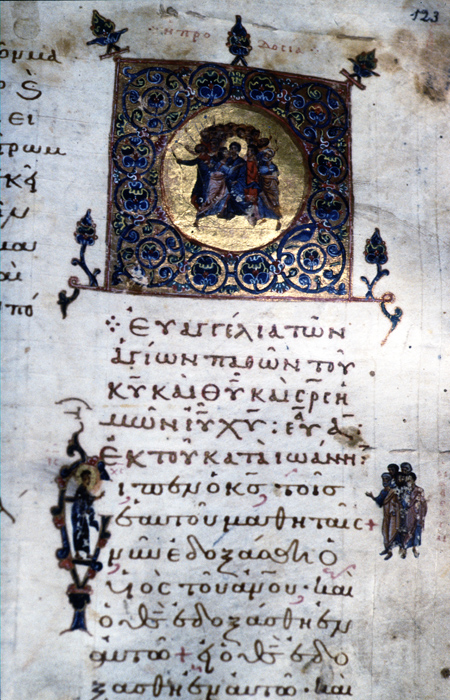 123
ἡ προδοσία
ει
μαυ
αι
πό
Ἐυαγγέλια τῶν
ἁγίων παθῶν τοῦ
κ̅υ̅ καὶ θ̅υ̅ καὶ σ̅ρ̅ς ἡ
μῶν ἰ̅υ̅ χ̅υ̅ : εὐα
Ἐκ τοῦ κατὰ ἰωάνη :
ιπεν ὁ κ̅ς̅ τοῖς
ἑαυτοῦ μαθηταῖς +
νῦν ἐδοξάσθη ὁ
υἱὸς τοῦ ἀν̅ου· καὶ
ὁ θ̅ς̅ ἐδοξάσθη ἐν
αὐτῶ + εἰ ὁ θ̅ς̅ ἐδο
ξάσθη ἐν αὐτῶ· καὶ